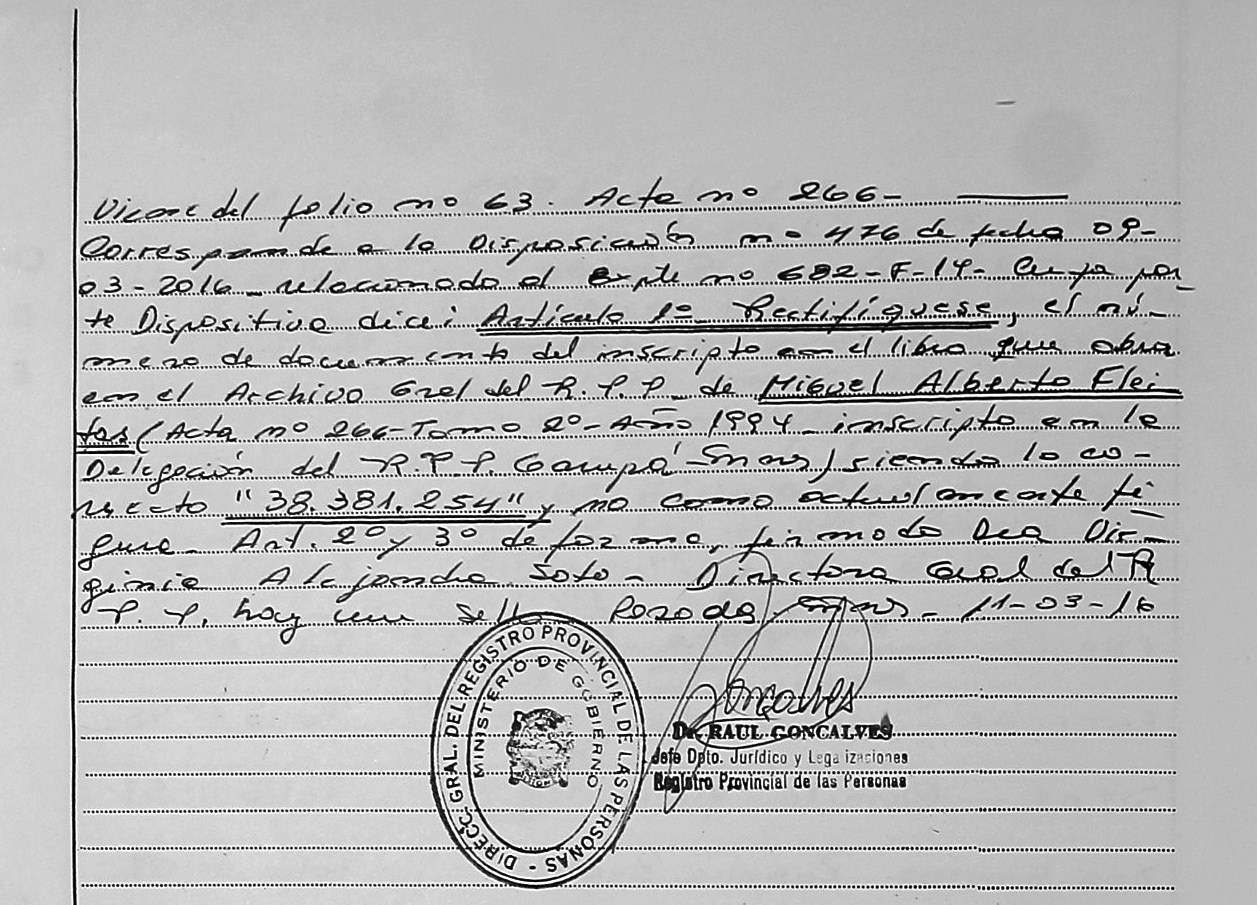 Viene del folio no 63. Acta no 266-
Corresponde a la Disposición no 476 de fecha 09-
03-2016- relacionado al Expte no 682-F-14- Cuya par-
te Dispositiva dice: Artículo 1º- Rectifíquese, el nú-
mero de documento del inscripto en el libro que obra
en el Archivo Gral del R.P.P. de Miguel Alberto Flei-
tas (Acta no 266-Tomo 2º-Año 1994- inscripto en la
Delegación del R.P.P. Garupá-Mnes) siendo lo co-
rrecto "38.381.254" y no como actualmente fi-
gura- Art. 2º y 3º de forma, firmado Dra Vir-
ginia Alejandra Soto- Directora Gral del R
P. P. hay un sello Posadas, Mnes- 11-03-16
DIRECC. GRAL. DEL REGISTRO PROVINCIAL DE LAS PERSONAS -
MINISTERIO DE GOBIERNO
Goncalves
Dr. RAUL GONCALVES
Jefe Dpto. Jurídico y Legalizaciones
Registro Provincial de las Personas